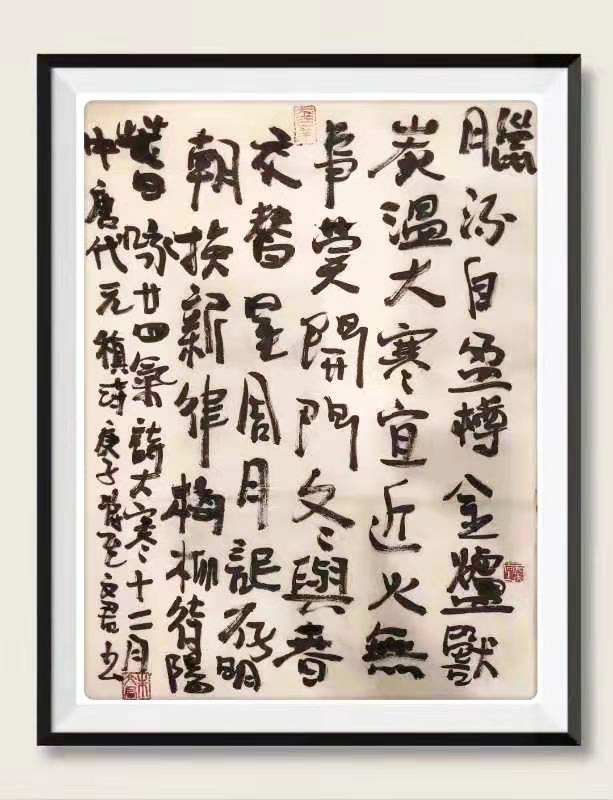 臘酒自盈樽金爐獸
炭溫大寒宜近火無
事莫開門冬與春
交替星周月詎存明
朝換新律梅柳待陽
春詠廿四氣詩大寒十二月
中唐代元稹詩庚子文君书